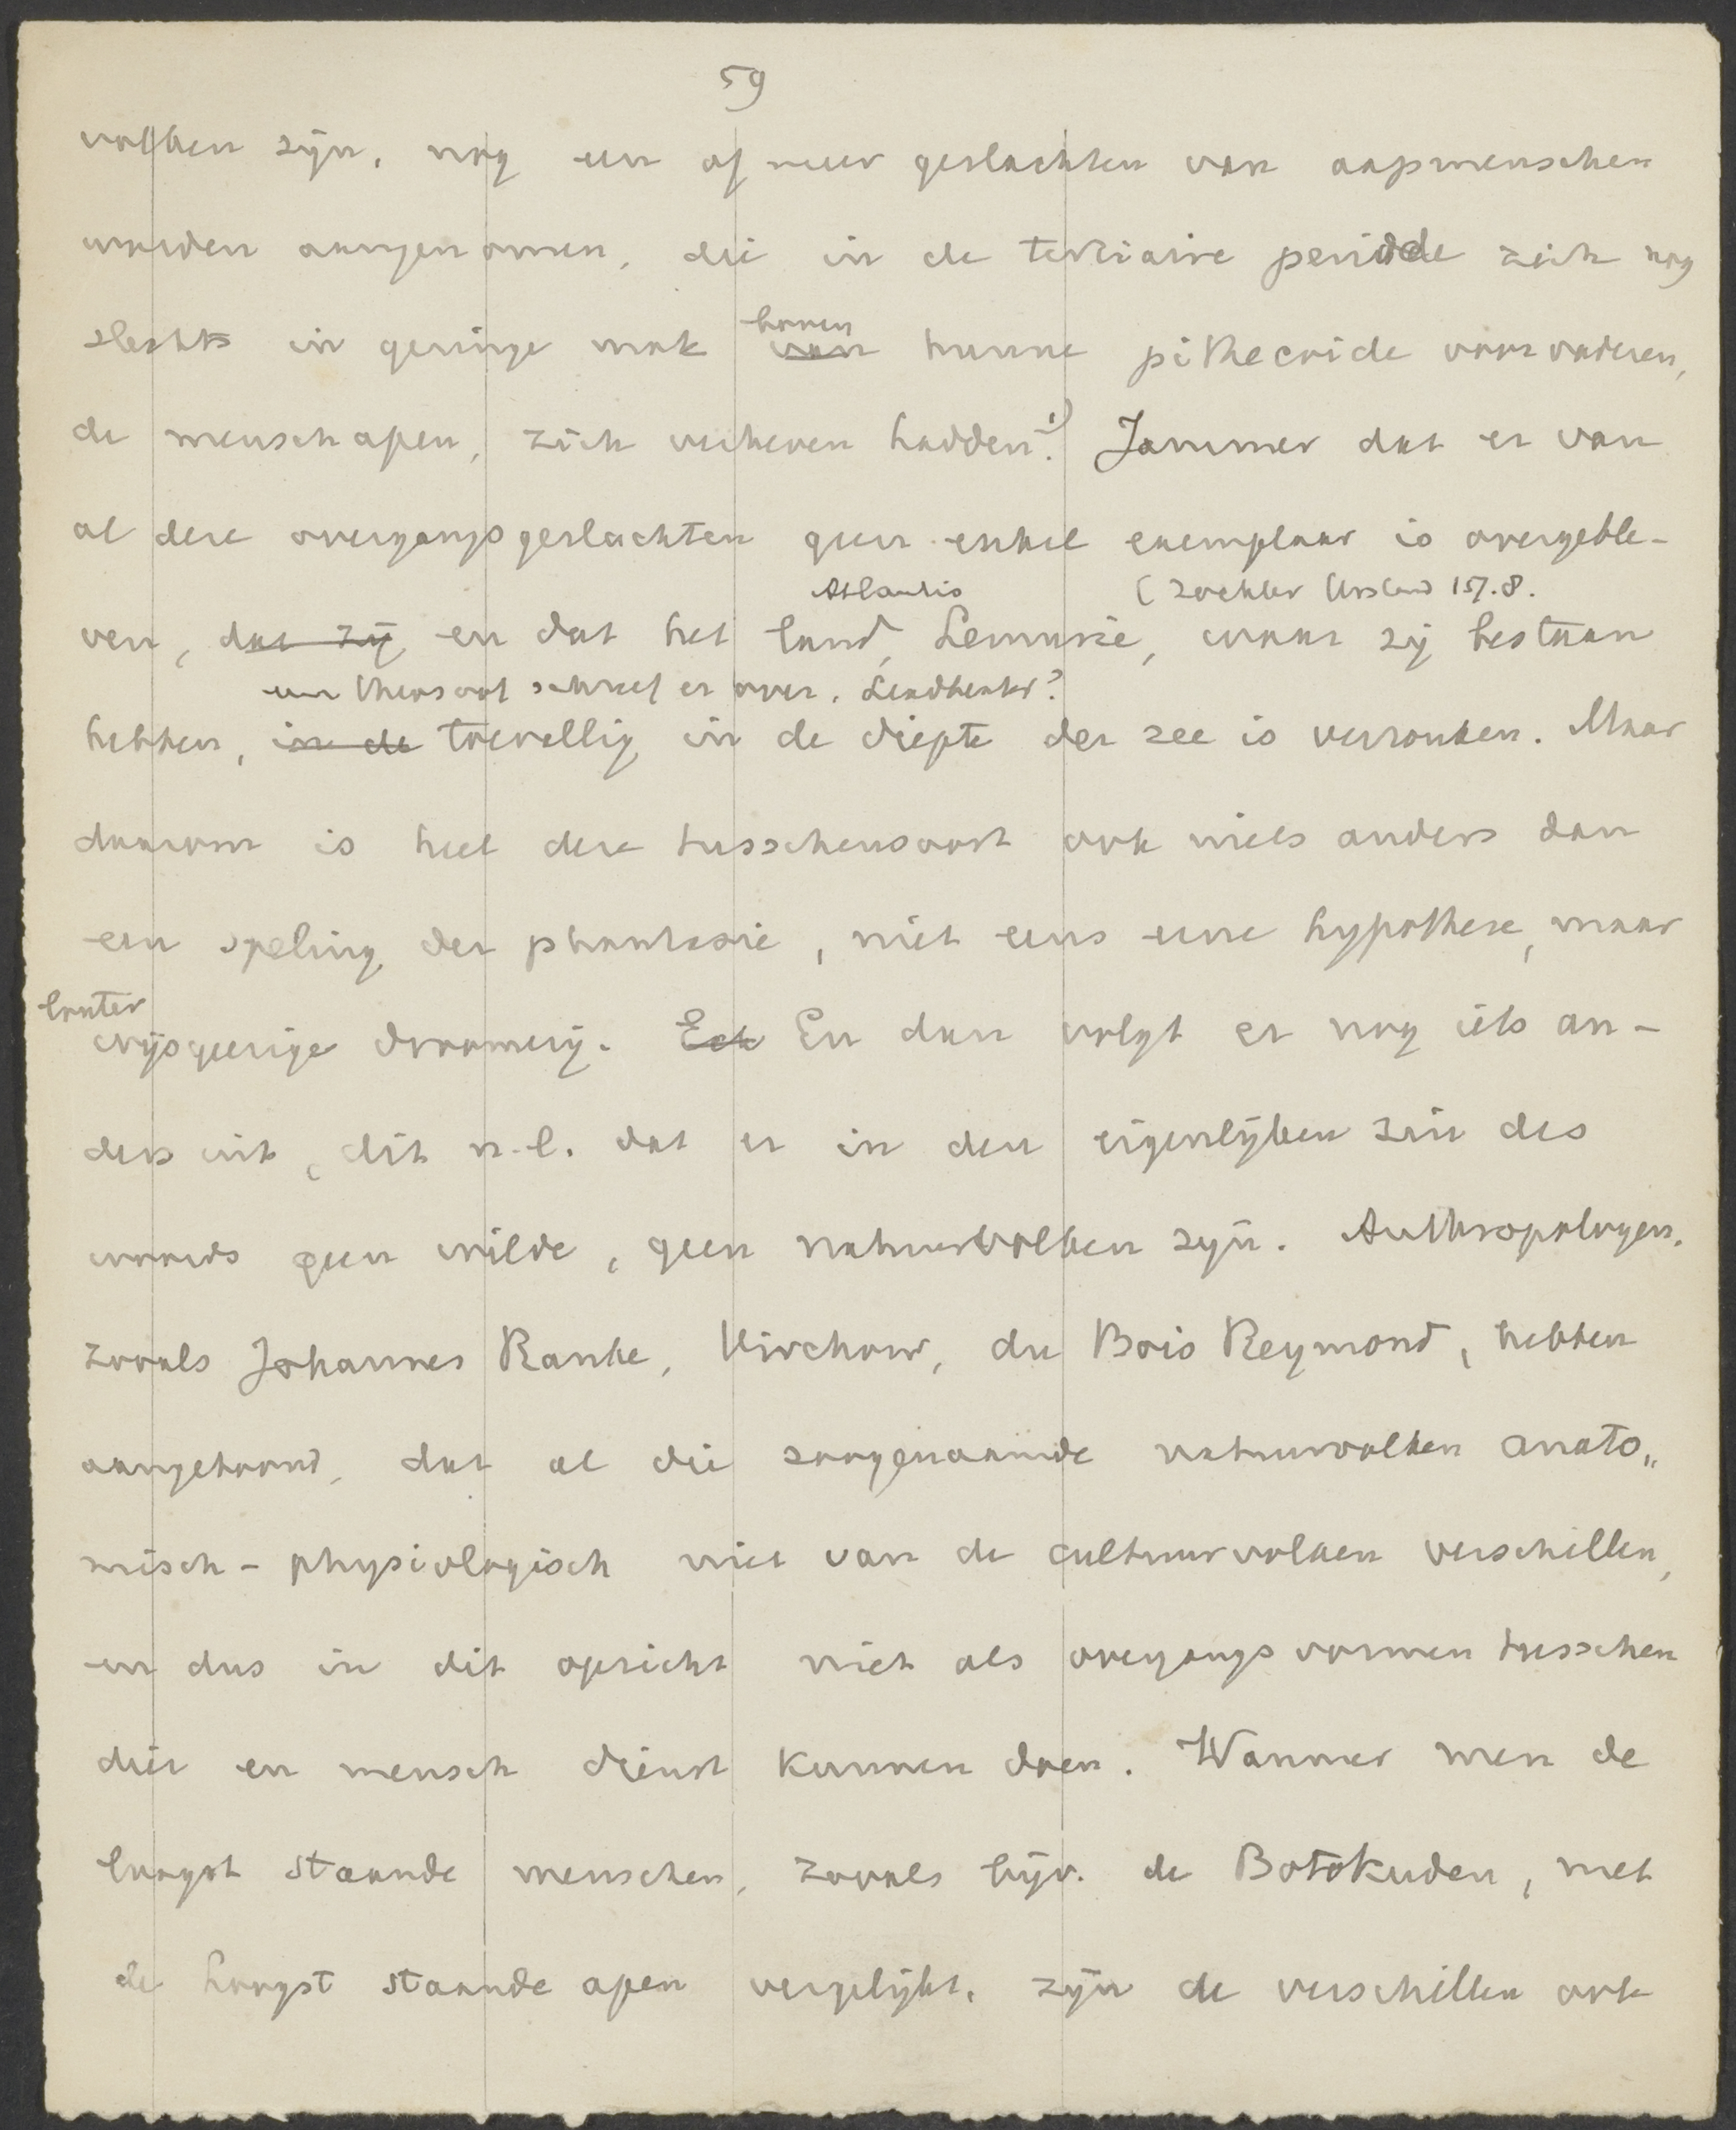 59
volken zijn, nog een of meer geslachten van aapmenschen
worden aangenomen, die in de tertiaire periode zich nog
slechts in geringe mate boven
van hunne pithecoide voorvaderen,
de menschapen, zich verheven hadden.¹) Jammer dat er van
al deze overgangsgeslachten geen enkel exemplaar is overgeble-
Atlantis (Zöckler Urstand 157.8.
ven, dat zij en dat het land, Lemurie, waar zij bestaan
een schreef er over.
hebben, in de toevallig in de diepte der zee is verzonken. Maar
daarom is heel deze tusschensoort ook niets anders dan
een speling der phantasie, niet eens eene hypothese, maar
louter
wijsgeerige droomerij. En dan volgt er nog iets an-
ders uit, dit n.l. dat er in den eigenlijken zin des
woords geen wilde, geen natuurvolken zijn. Anthropologen,
zooals Johannes Ranke, Virchow, du Bois Reymond, hebben
aangetoond, dat al die zoogenaamde natuurvolken anato„
misch-physiologisch niet van de cultuurvolken verschillen,
en dus in dit opzicht niet als overgangsvormen tusschen
dier en mensch dienst kunnen doen. Wanneer men de
laagst staande menschen, zooals bijv. de Botokuden, met
de hoogst staande apen vergelijkt, zijn de verschillen ook